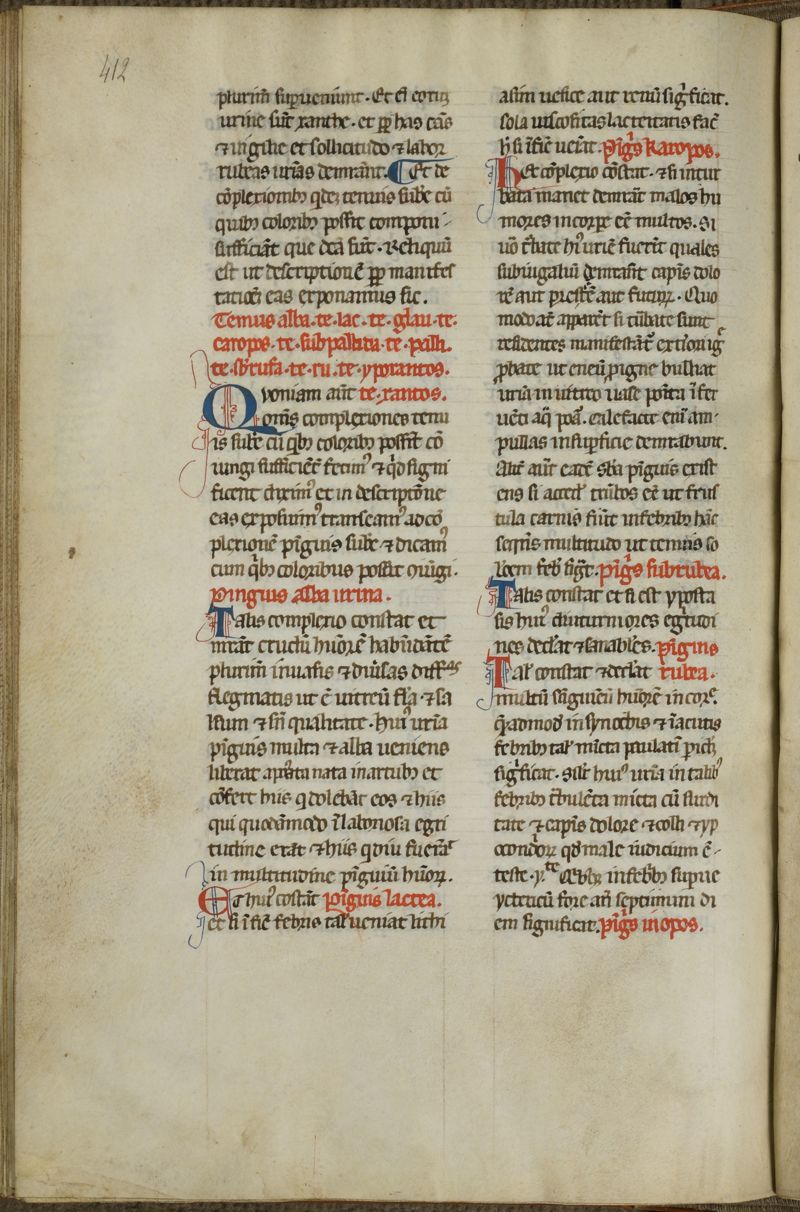 412
plurim̄ suꝑueniunt. Et si
urine sūt xanthe. et ꝓp has cās
⁊ uigilie et sollicitudo ⁊ labor
rubeas urīas demrānt. Et de
cōplexionibꝫ qͥdeꝫ tenuis sube cū
quibꝫ coloribꝫ possit componi
sufficiāt que dcā sūt. Reliquū
est ut descriptionē ꝓp manifes
tationē eas exponamus sic.
Tenuis alba. te. lac. te. glau. te.
carops. te. subpallida. te. pall.
te. sbrufa. te. ru. te. ypoxantos.
Quoniam aūt te. xantos.
omīs complexiones tenu
is sube cū qͥbꝫ coloribꝫ possīt cō
iungi sufficiēt᷑ fecimꝰ ⁊ qͥd signi
ficent diximꝰ et in descriptōne
eas exposuimꝰ transeamꝰ ad cō
plexionē pīguis sube ⁊ dicamꝰ
cum qͥbꝫ coloribus possit ɔiūgi.
Pinguis alba urina.
Talis complexio constat et
intrāt crudū huorē habūdātē
plurim̄ in uasis ⁊ diuīsas diffᵃˢ
flegmatis ut ē uitreū ⁊ sa
lsum ⁊ sn̄ qualitate. huiꝰ urīa
pīguis multa ⁊ alba ueniens
liberat aposta nata in artubꝫ et
cōfert hiis q dolebāt eos ⁊ hiis
qui quodāmodo ī laboriosa egri
tudine erāt ⁊ hiis q diu fuerāt
in multitudine pīguiū huorꝝ.
Et huiꝰ cōstāt Pīguis lactea.
et si ī fiē febris tal᷑ ueniat lithi
asim uesice aut renū sigͥficat.
sola uiscositas lacteitatis facē
hͦ si ī fiē ueīat. pīgͥs karopos.
Hec cōplexio cōstat. ⁊ si intur
bata manet demrāt malos hu
mores in corpe eē multos. Si
uō tͥbate hꝰ uriē fuerīt quales
subiugaliū demrāt capis dolo
rē aut presētē aut futurꝝ. Quo
modo at̄ apparēt si tūbate sunt
residentes manifestāt᷑ extio nī ig
ꝓbate ut eneū ꝑigne bulliat
urīa in uitreo uase poīta ī fer
uēti aq̄ poā. calefacte eni am
pullas in suꝑficie demrabunt.
Alit᷑ aūt eadē sba pīguis exist
ens si acced᷑ turbos eē ut frus
tula carnis fiūt in febribꝫ hāc
seqͥtᷣs multitudo ut tenuis so
loem feb sigͣt. pīgͥs subrubea.
Talis constat et si est yposta
sis hꝰ diuturniores egͥtudi
nes declāt ⁊ sanabiles. pīguis
Tal᷑ constat ⁊ declāt rubea.
multū sāguineū huorē in corᵉ.
qͣadmod̄ in synochis ⁊ ī acutis
febribꝫ tal᷑ micta paulatī pich
sigͥficat. Silr̄ huiꝰ urīa in talibꝰ
febribꝫ tͥbulēta micta cū surdi
tate ⁊ capis dolore ⁊ colli ⁊ yp
ocondorꝝ qd̄ male iudicium ē
teste. y. in febͥbꝫ supue
yctericū fore añ septimum di
em significat. pīgͥs inopos.